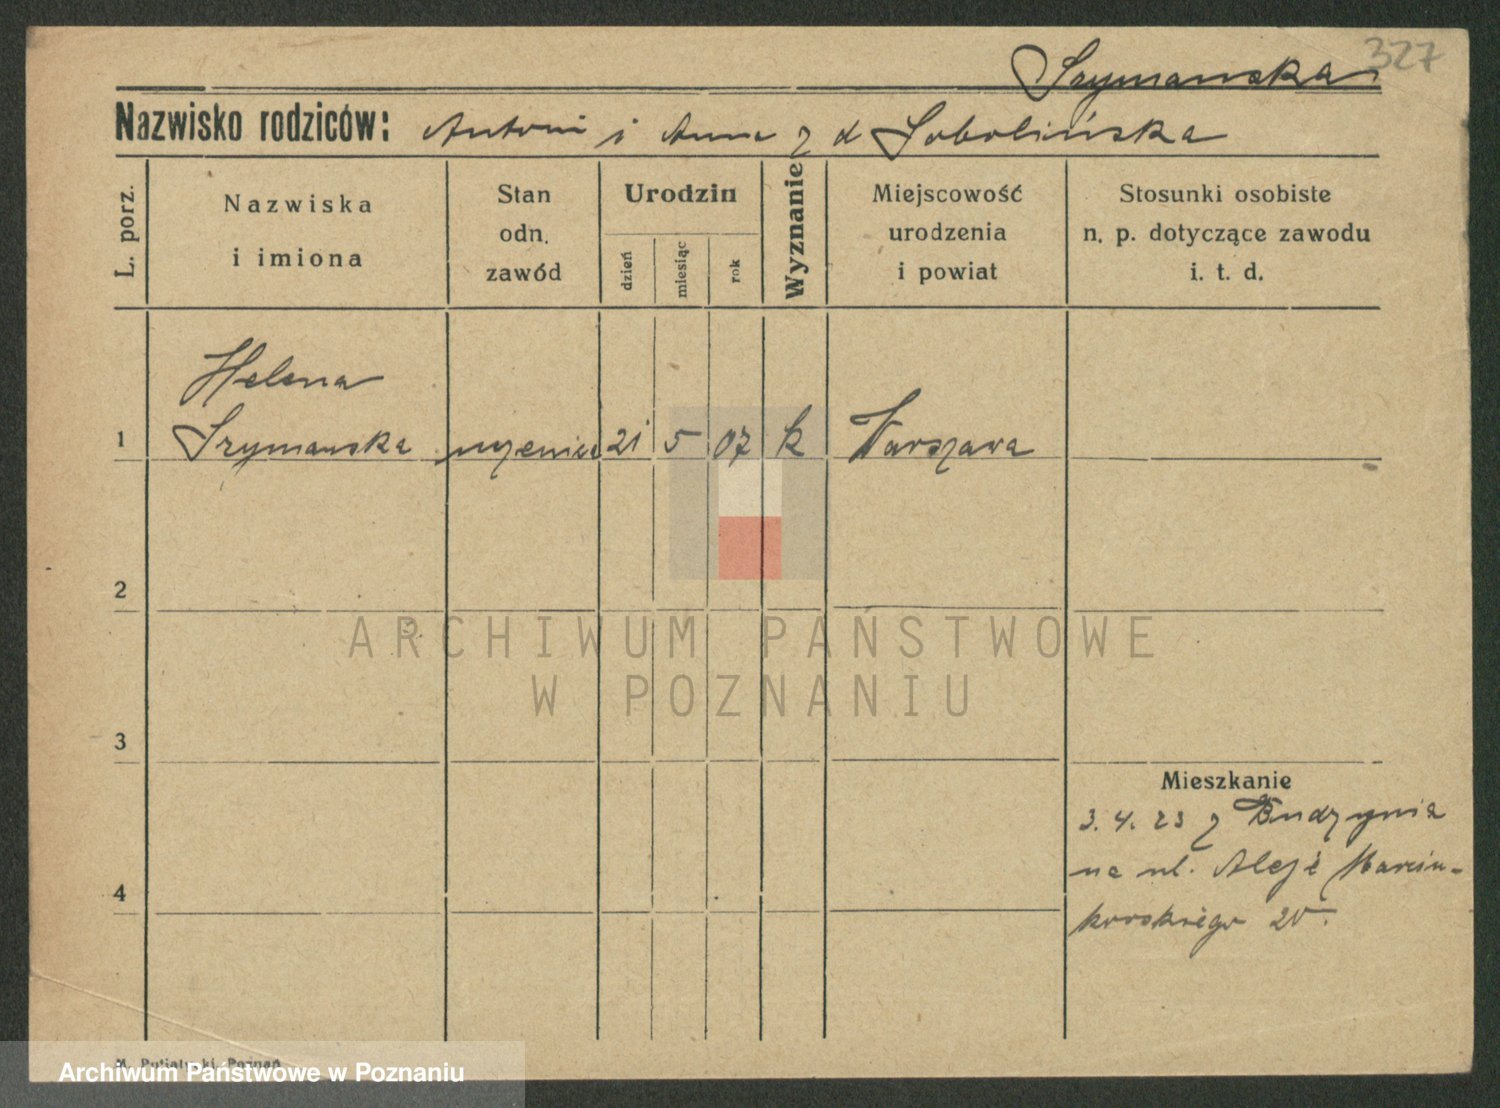 327
Szymanska
Nazwisko rodziców: Antoni i Anna z d Sobolińska
L. porz.
Nazwiska
i imiona
Stan
odn.
zawód
Urodzin
dzień
miesiąc
rok
Wyznanie
Miejscowość
urodzenia
i powiat
Stosunki osobiste
n. p. dotyczące zawodu
i. t. d.
Helena
1 Szymanska uczenica 21 5 07 k Warszawa
2
ARCHIWUM PAŃSTWOWE
W POZNANIU
3
Mieszkanie
3. 4. 23 z Budzynia
na ul. Aleje Marcin-
kowskiego 20.
4
Poznań
Archiwum Państwowe w Poznaniu